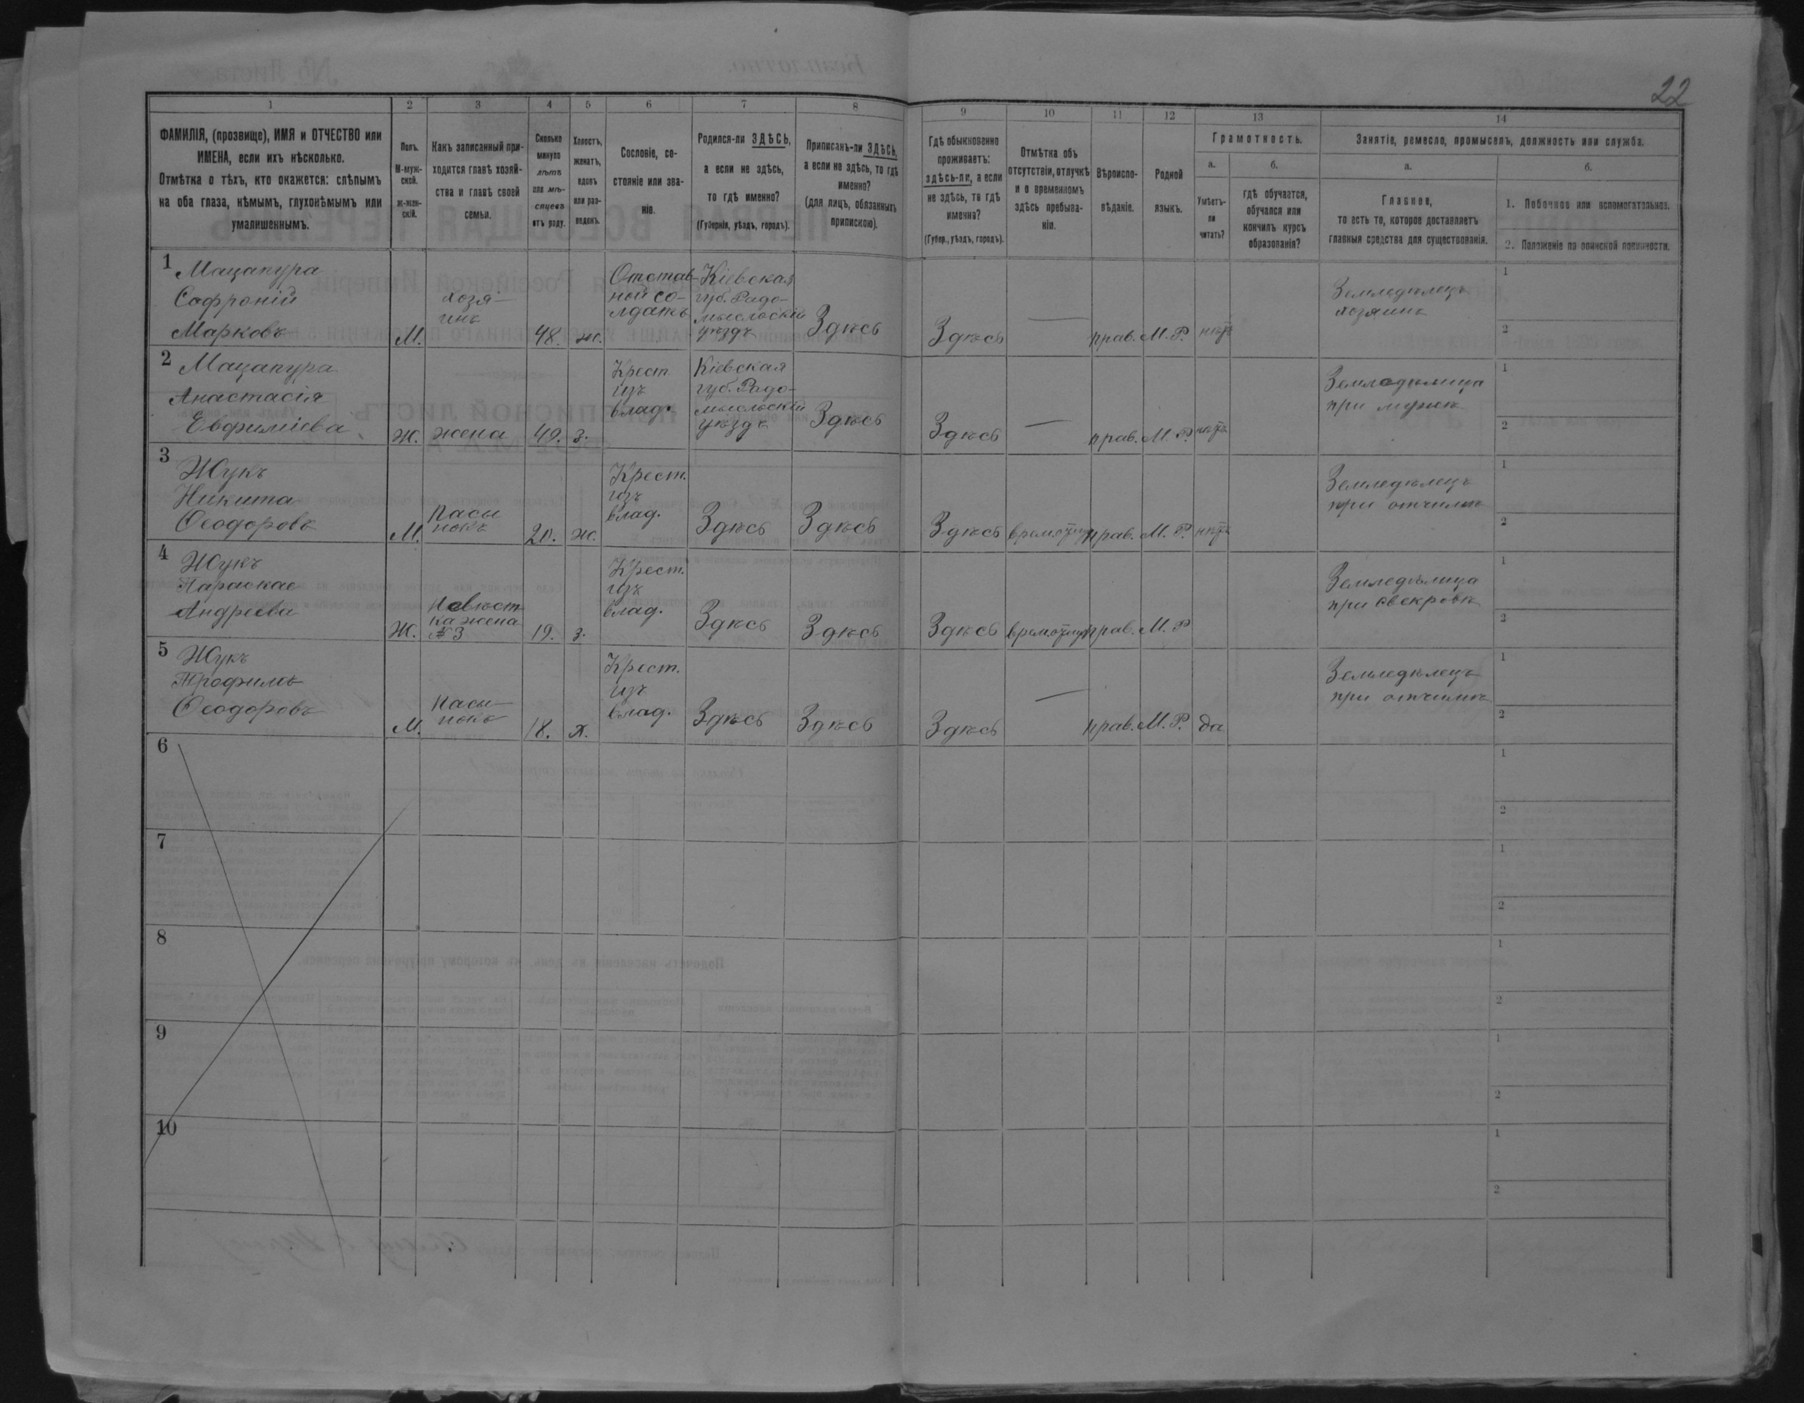 22
1 2 3 4 5 6 7 8 9 10 11 12 13 14
ФАМИЛІЯ, (прозвище), ИМЯ и ОТЧЕСТВО или
ИМЕНА, если ихъ нѣсколько.
Отмѣтка о тѣхъ, кто окажется: слѣпымъ
на оба глаза, нѣмымъ, глухонѣмымъ или
умалишеннымъ.
Полъ.
М-муж-
ской.
Ж-жен-
скій.
Какъ записанный при-
ходится главѣ хозяй-
ства и главѣ своей
семьи.
Сколько
минуло
лѣтъ
или мѣ-
сяцевъ
отъ роду.
Холостъ,
женатъ,
вдовъ
или раз-
веденъ.
Сословіе, со-
стояніе или зва-
ніе.
Родился-ли ЗДѢСЬ,
а если не здѣсь,
то гдѣ именно?
(Губернія, уѣздъ, городъ).
Приписанъ-ли ЗДѢСЬ,
а если не здѣсь, то гдѣ
именно?
(для лицъ, обязанныхъ
припискою).
Гдѣ обыкновенно
проживаетъ:
здѣсь-ли, а если
не здѣсь, то гдѣ
именно?
(Губер., уѣздъ, городъ).
Отмѣтка объ
отсутствіи, отлучкѣ
и о временномъ
здѣсь пребыва-
ніи.
Вѣроиспо-
вѣданіе.
Родной
языкъ.
Грамотность.
а.
Умѣетъ-
ли
читать?
б.
гдѣ обучается,
обучался или
кончилъ курсъ
образованія?
Занятіе, ремесло, промыселъ, должность или служба.
а.
Главное,
то есть то, которое доставляетъ
главныя средства для существованія.
б.
1. Побочное или вспомогательное.
2. Положеніе по воинской повинности.
1
Мацапура
Софроній
Марковъ
М.
хозя-
инъ
48.
ж.
Отстав-
ной со-
лдатъ
Кіевская
губ. Радо-
мысльскій
уѣздъ
Здѣсь
Здѣсь
—
прав.
М. Р.
нѣтъ
Земледѣлецъ
хозяинъ
1
2
2
Мацапура
Анастасія
Евфиміева
Ж.
жена
49.
з.
Крест.
изъ
влад.
Кіевская
губ. Радо-
мысльскій
уѣздъ
Здѣсь
Здѣсь
—
прав.
М. Р.
нѣтъ
Земледѣлица
при мужѣ
1
2
3
Жукъ
Никита
Ѳеодоровъ
М.
пасы
нокъ
20.
ж.
Крест.
изъ
влад.
Здѣсь
Здѣсь
Здѣсь
прав.
М. Р.
нѣтъ
Земледѣлецъ
при отчимѣ
1
2
4
Жукъ
Параскае
Андреева
Ж.
Невѣст
ка жена
№ 3
19.
з.
Крест.
изъ
влад.
Здѣсь
Здѣсь
Здѣсь
прав.
М. Р
Земледѣлица
при свекровѣ
1
2
5
Жукъ
Трофимъ
Ѳеодоровъ
М.
пасы-
нокъ
18.
х.
Крест.
изъ
влад.
Здѣсь
Здѣсь
Здѣсь
—
прав.
М. Р.
да
Земледѣлецъ
при отчимѣ
1
2
6
1
2
7
1
2
8
1
2
9
1
2
10
1
2